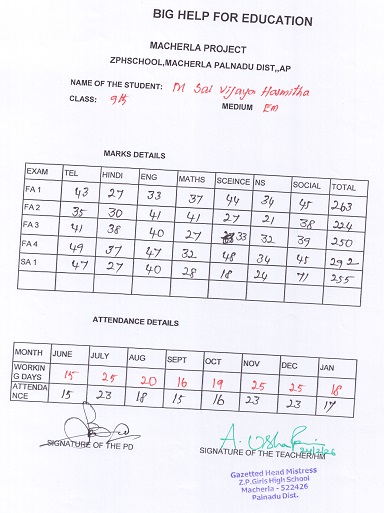 BIG HELP FOR EDUCATION
MACHERLA PROJECT
ZPHSCHOOL,MACHERLA PALNADU DIST,,AP
NAME OF THE STUDENT: M Sai Vijaya Harmitha
CLASS: 9th MEDIUM Em
MARKS DETAILS
EXAM TEL HINDI ENG MATHS SCEINCE NS SOCIAL TOTAL
FA 1 43 27 33 37 44 34 45 263
FA 2 35 30 41 41 27 21 38 224
FA 3 41 38 40 27 33 32 39 250
FA 4 49 37 47 32 48 34 45 292
SA 1 47 27 40 28 18 24 71 255
ATTENDANCE DETAILS
MONTH JUNE JULY AUG SEPT OCT NOV DEC JAN
WORKIN
G DAYS 15 25 20 16 19 25 25 18
ATTENDA
NCE 15 23 18 15 16 23 23 17
SIGNATURE OF THE PD
SIGNATURE OF THE TEACHER/HM
Gazetted Head Mistress
Z.P.Girls High School
Macherla - 522426
Palnadu Dist.